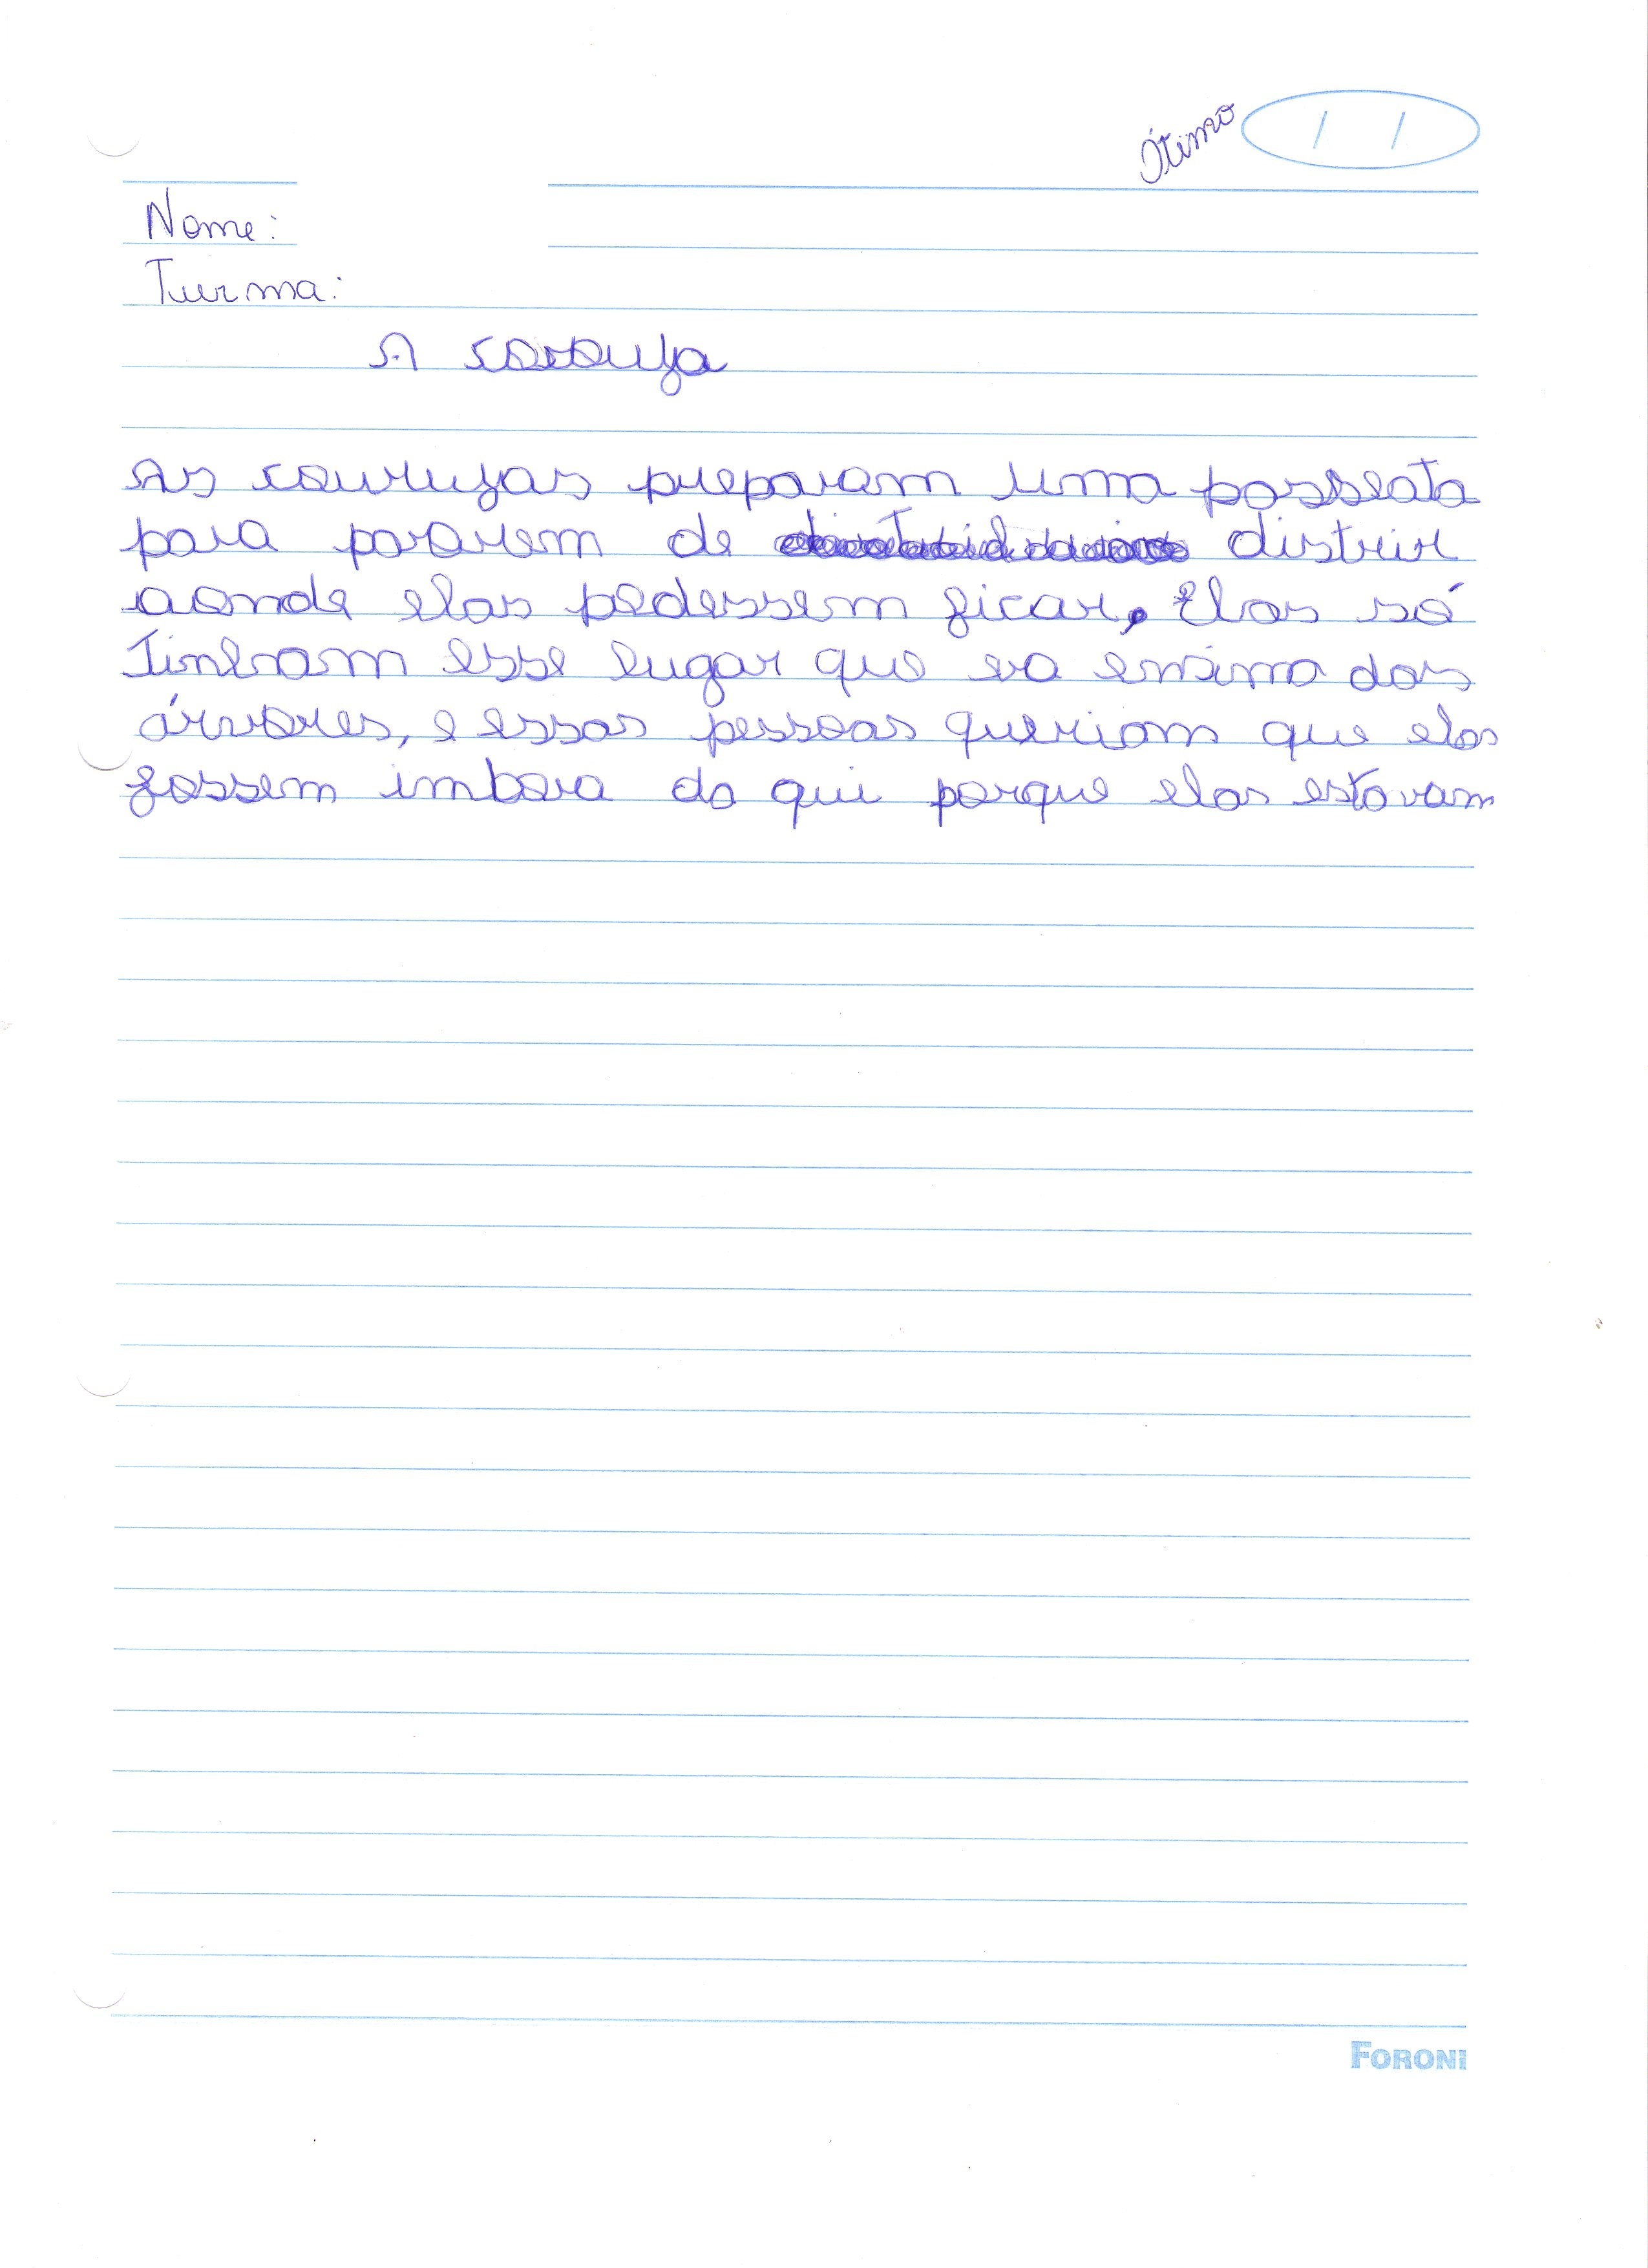 Ótimo
Nome:
Turma:
A corouja
As courujas preparam uma posseata
para pararem de distrir
aonde elas podessem ficar. Elas só
Tinham esse lugar que era emsima das
árvores, e essas pessoas queriam que elas
fossem imbora da qui porque elas estavam
FORONI